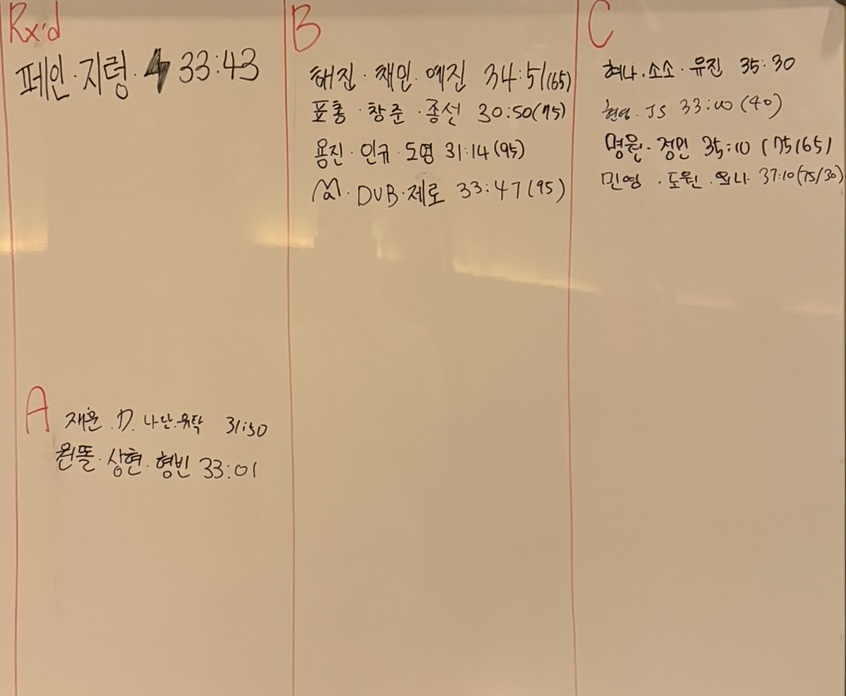 Rx'd
페인·지령· 33:43
A
재훈 . . 나단.유탁 31:50
왼뜰·상현·형빈 33:01
B
해진·채민·예진 34:51(65)
표홍·창준·종선 30:50(75)
용진·인규·도영 31:14(95)
·DVB·제로 33:47(95)
C
혜나·소소·유진 35:30
현영·JS 33:00(40)
명원·정민 35:10(75/65)
민영·도원· 37:10(75/30)